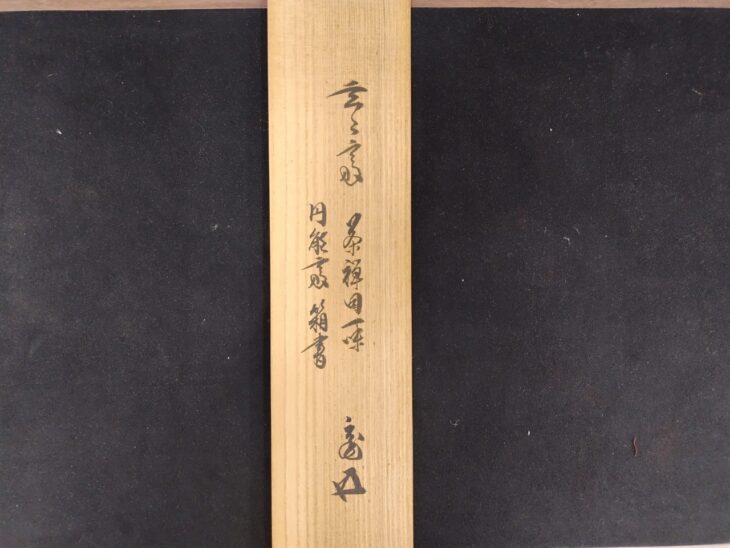 玄々斎 茶禅同一味
円能斎 箱書